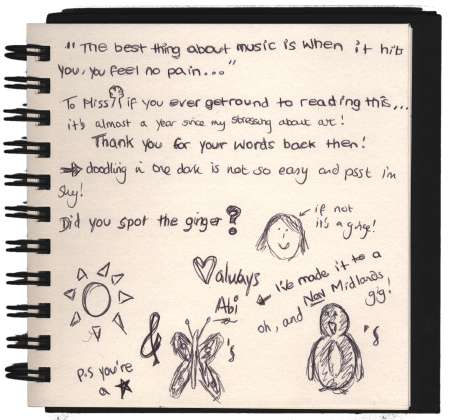 "The best thing about music is when it hits
you, you feel no pain..."
To Miss if you ever get round to reading this...
it's almost a year since my stressing about art!
Thank you for your words back then!
doodling in the dark is not so easy and psst i'm
shy!
Did you spot the ginger?
if not
it's a ginge!
always
Abi
I've made it to a
Non Midlands
gig!
oh, and
&
's
's
P.S you're
a